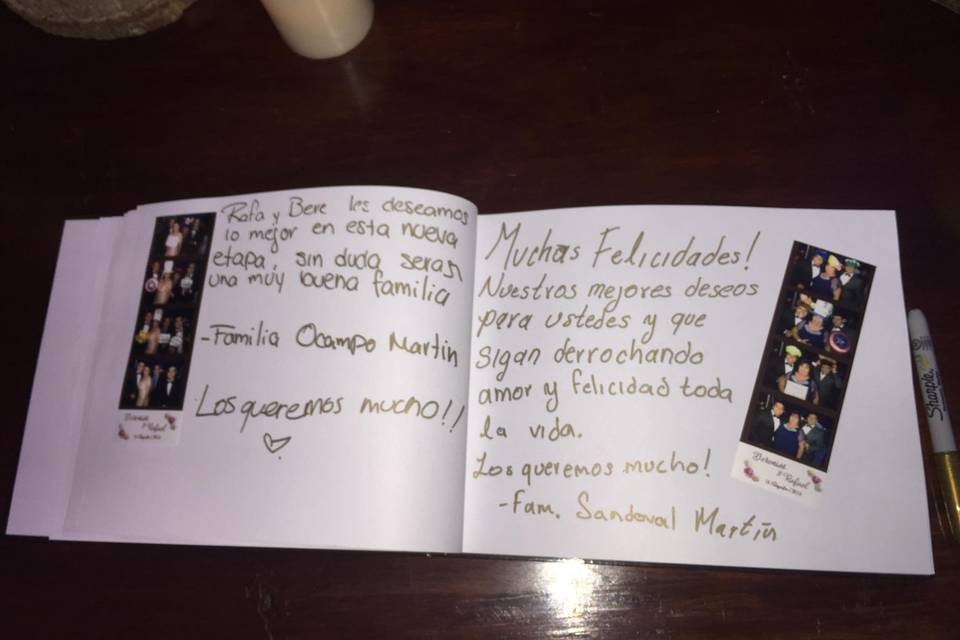 Rafa y Bere les deseamos
lo mejor en esta nueva
etapa, sin duda seran
una muy buena familia
-Familia Ocampo Martin
Los queremos mucho!!
Berenice
& Rafael
Muchas Felicidades!
Nuestros mejores deseos
para ustedes y que
sigan derrochando
amor y felicidad toda
la vida.
Los queremos mucho!
-Fam. Sandoval Martín
Berenice
& Rafael
Sharpie